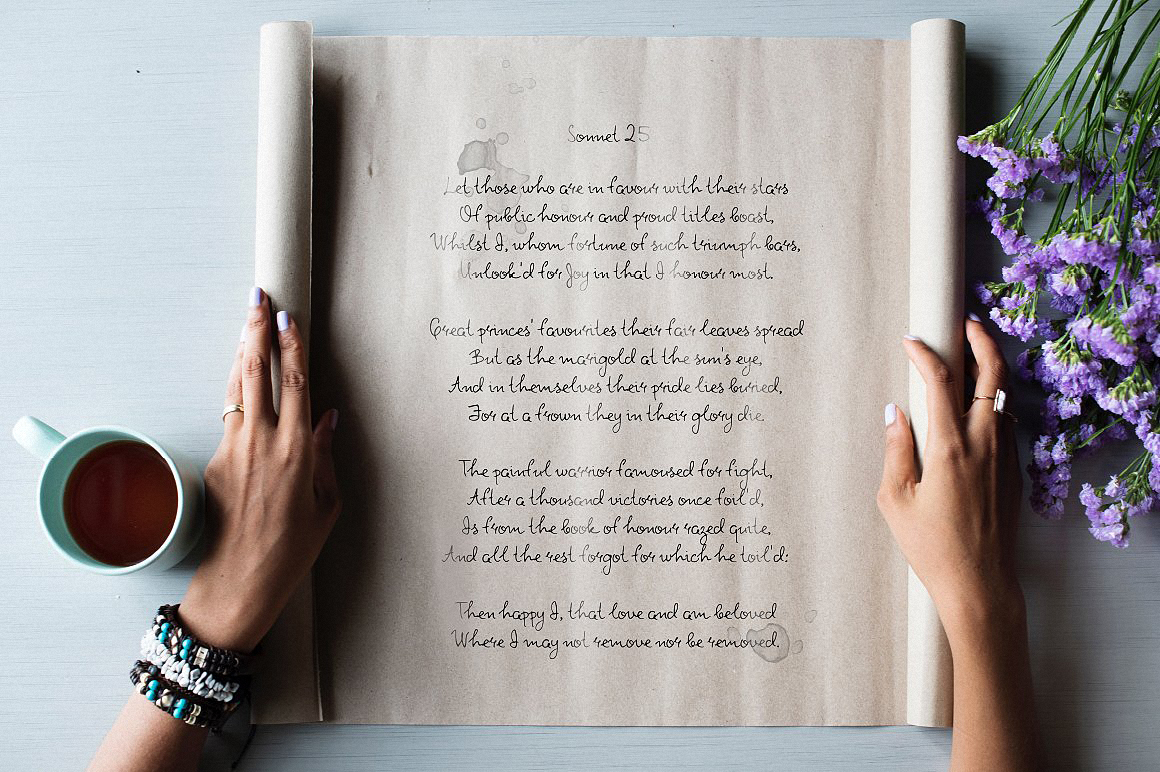 Sonnet 25
Let those who are in favour with their stars
Of public honour and proud titles boast,
Whilst I, whom fortune of such triumph bars,
Unlook'd for joy in that I honour most.
Great princes' favourites their fair leaves spread
But as the marigold at the sun's eye,
And in themselves their pride lies buried,
For at a frown they in their glory die.
The painful warrior famoused for fight,
After a thousand victories once foil'd,
Is from the book of honour razed quite,
And all the rest forgot for which he toil'd:
Then happy I, that love and am beloved
Where I may not remove nor be removed.